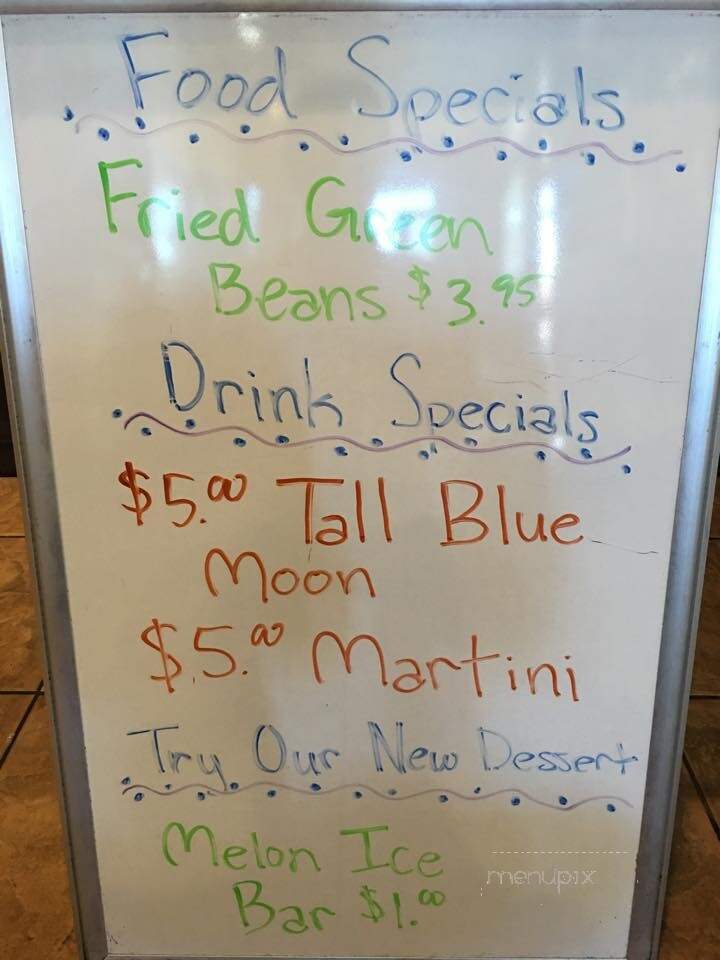 Food Specials
Fried Green
Beans $3.95
Drink Specials
$5.00 Tall Blue
Moon
$5.00 Martini
Try Our New Dessert
Melon Ice
Bar $1.00
menupix